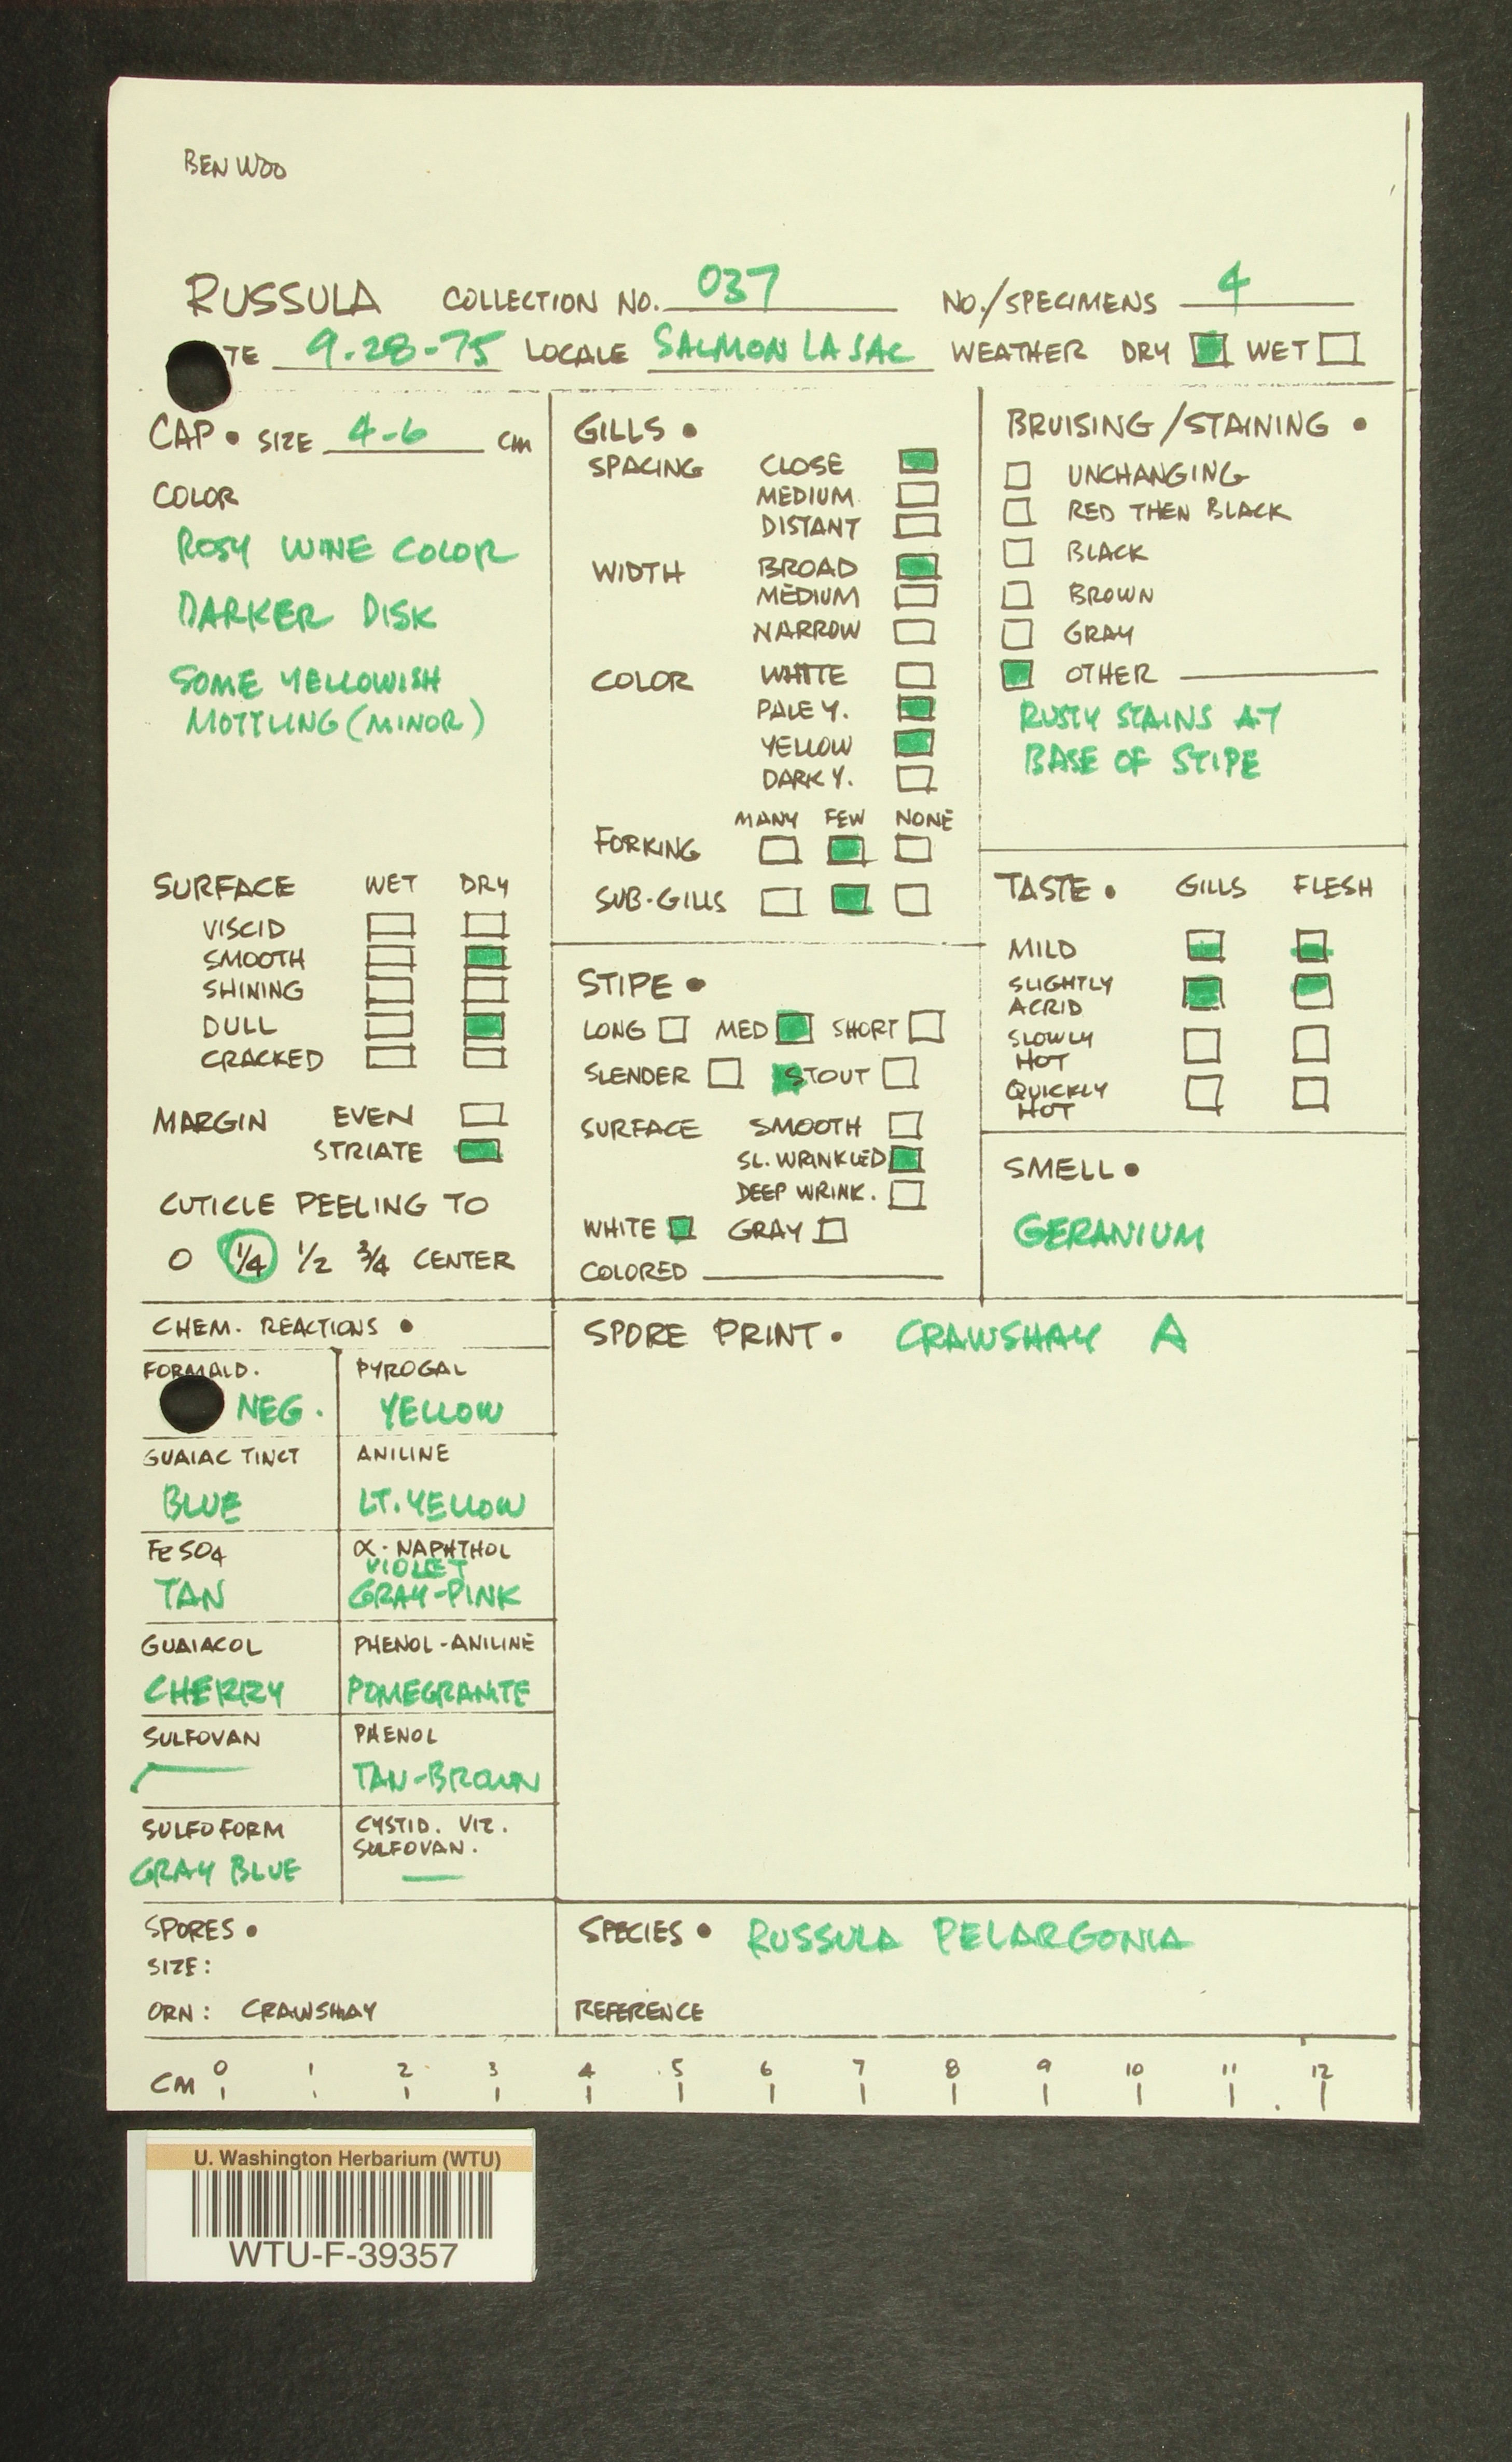 BEN WOO
RUSSULA COLLECTION NO. 037 NO./SPECIMENS 4
TE 9-28-75 LOCALE SALMON LA SAC WEATHER DRY WET
CAP • SIZE 4-6 CM
COLOR
ROSY WINE COLOR
DARKER DISK
SOME YELLOWISH
MOTTLING (MINOR)
SURFACE WET DRY
VISCID
SMOOTH
SHINING
DULL
CRACKED
MARGIN EVEN
STRIATE
CUTICLE PEELING TO
0 1/4 1/2 3/4 CENTER
GILLS •
SPACING CLOSE
MEDIUM
DISTANT
WIDTH BROAD
MEDIUM
NARROW
COLOR WHITE
PALE Y.
YELLOW
DARK Y.
MANY FEW NONE
FORKING
SUB-GILLS
STIPE •
LONG MED SHORT
SLENDER STOUT
SURFACE SMOOTH
SL. WRINKLED
DEEP WRINK.
WHITE GRAY
COLORED
BRUISING/STAINING •
UNCHANGING
RED THEN BLACK
BLACK
BROWN
GRAY
OTHER
RUSTY STAINS AT
BASE OF STIPE
TASTE • GILLS FLESH
MILD
SLIGHTLY
ACRID
SLOWLY
HOT
QUICKLY
HOT
SMELL •
GERANIUM
CHEM. REACTIONS •
FORMALD. PYROGAL
NEG. YELLOW
GUAIAC TINCT ANILINE
BLUE LT. YELLOW
FeSO4 α-NAPHTHOL
VIOLET
TAN GRAY-PINK
GUAIACOL PHENOL-ANILINE
CHERRY POMEGRANITE
SULFOVAN PHENOL
— TAN-BROWN
SULFOFORM CYSTID. VIZ.
SULFOVAN.
GRAY BLUE —
SPORE PRINT • CRAWSHAY A
SPORES •
SIZE:
ORN: CRAWSHAY
SPECIES • RUSSULA PELARGONIA
REFERENCE
CM 0 1 2 3 4 5 6 7 8 9 10 11 12
U. Washington Herbarium (WTU)
WTU-F-39357